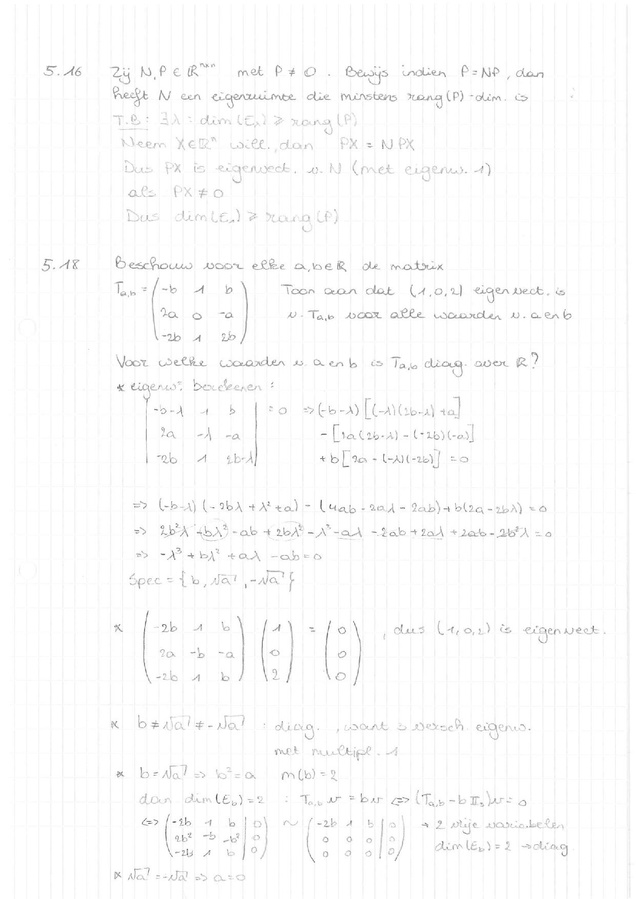 5.16 Zij N,P ∈ ℝⁿˣⁿ met P ≠ 0. Bewijs indien P=NP, dan
heeft N een eigenruimte die minstens rang(P)-dim. is
T.B: ∃λ: dim(E_λ) ≥ rang(P)
Neem X∈ℝⁿ will., dan PX = NPX
Dus PX is eigenvect. v. N (met eigenw. 1)
als PX≠0
Dus dim(E₁) ≥ rang(P)
5.18 Beschouw voor elke a,b∈ℝ de matrix
T_{a,b} = (-b 1 b; 2a 0 -a; -2b 1 2b) Toon aan dat (1,0,2) eigenvect. is
v. T_{a,b} voor alle waarden v. a en b
Voor welke waarden v. a en b is T_{a,b} diag. over ℝ?
* eigenw. berekenen:
|-b-λ 1 b| = 0 ⇒ (-b-λ)[(-λ)(2b-λ)+a]
|2a -λ -a| - [2a(2b-λ) - (-2b)(-a)]
|-2b 1 2b-λ| + b[2a - (-λ)(-2b)] = 0
⇒ (-b-λ)(-2bλ + λ² + a) - (4ab - 2aλ - 2ab) + b(2a - 2bλ) = 0
⇒ 2b²λ - bλ² - ab + 2bλ² - λ³ - aλ - 2ab + 2aλ + 2ab - 2b²λ = 0
⇒ -λ³ + bλ² + aλ - ab = 0
Spec = {b, √a, -√a}
* (-2b 1 b; 2a -b -a; -2b 1 b) (1; 0; 2) = (0; 0; 0), dus (1,0,2) is eigenvect.
* b ≠ √a ≠ -√a : diag., want 3 versch. eigenw.
met multipl. 1
* b = √a ⇒ b² = a m(b) = 2
dan dim(E_b) = 2 : T_{a,b} v = bv ⇔ (T_{a,b} - b𝕀₃)v = 0
⇔ (-2b 1 b | 0; 2b² -b -b² | 0; -2b 1 b | 0) ~ (-2b 1 b | 0; 0 0 0 | 0; 0 0 0 | 0) → 2 vrije variabelen
dim(E_b) = 2 → diag
* √a = -√a ⇒ a=0